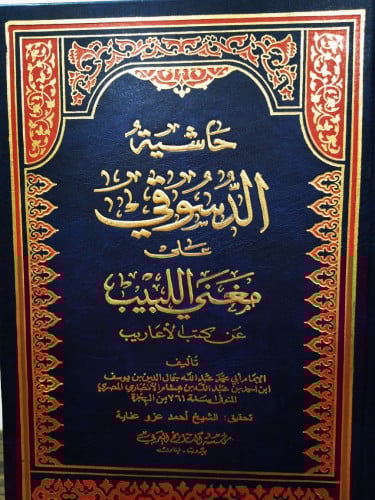 حاشية
الدسوقي
على
مغني اللبيب
عن كتب الأعاريب
تأليف
الإمام أبي محمد عبد الله جمال الدين بن يوسف
ابن أحمد بن عبد الله بن هشام الأنصاري المصري
المتوفى سنة ٧٦١ من الهجرة
تحقيق: الشيخ أحمد عزو عناية
مؤسسة التاريخ العربي
بيروت - لبنان